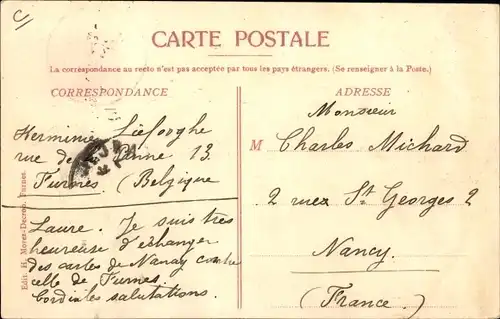 C
CARTE POSTALE
La correspondance au recto n'est pas acceptée par tous les pays étrangers. (Se renseigner à la Poste.)
CORRESPONDANCE
Herminie
rue de 13
Furnes (Belgique
Laure. Je suis très
heureuse d'échanger
des cartes de Nancy contre
celle de Furnes.
Cordiales salutations.
Edit. H. Furnes.
ADRESSE
Monsieur
M Charles Michard
2 rue St Georges 2
Nancy.
(France)